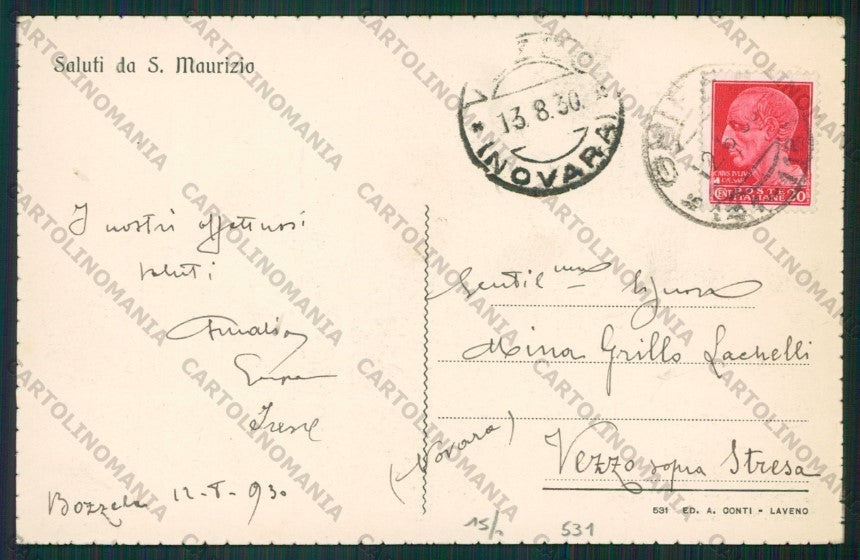 Saluti da S. Maurizio
13.8.30
(NOVARA)
POSTE
ITALIANE
CENT 20
I nostri affettuosi
saluti
Amalia
Irene
12-8-930
Gentil.ma Signora
Mina Grillo Lachelli
(Novara)
Vezzo sopra Stresa
531 ED. A. CONTI - LAVENO
15/-
531
CARTOLINOMANIA